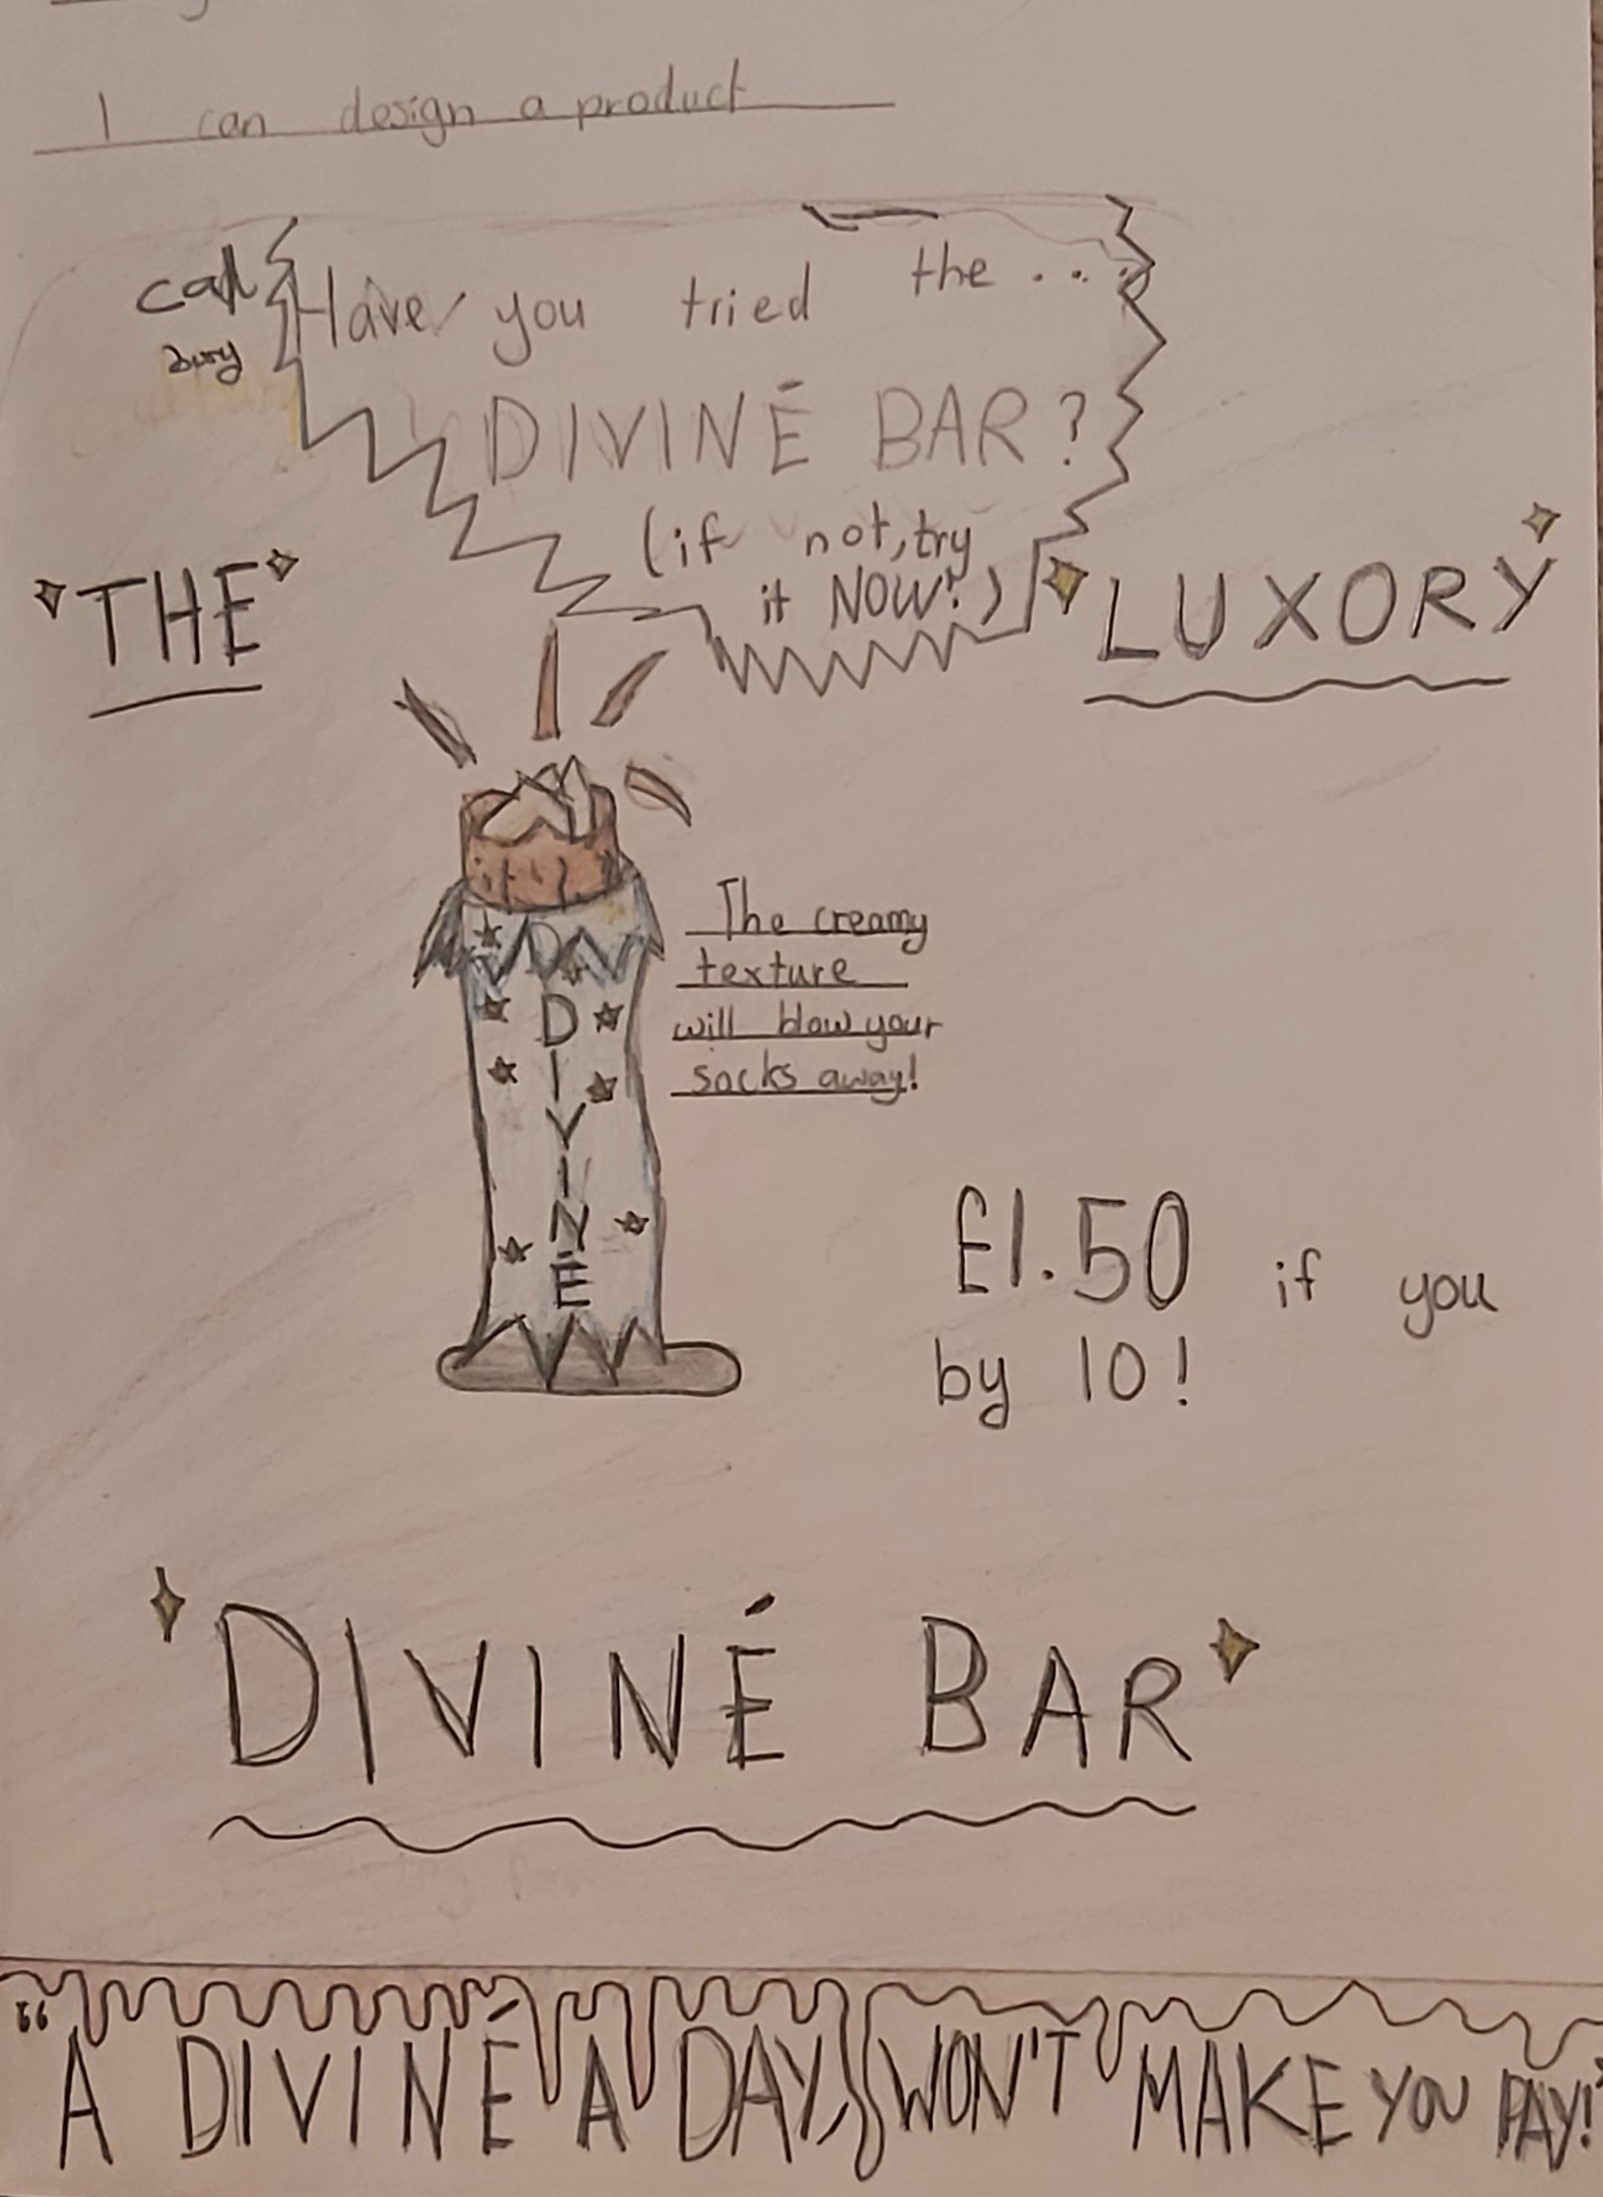 I can design a product
cad
bury
Have you tried the...
DIVINÉ BAR?
(if not, try
it NOW!)
THE
LUXORY
The creamy
texture
will blow your
socks away!
D
I
V
I
N
É
£1.50 if you
by 10!
DIVINÉ BAR
"A DIVINÉ A DAY, WON'T MAKE YOU PAY!"